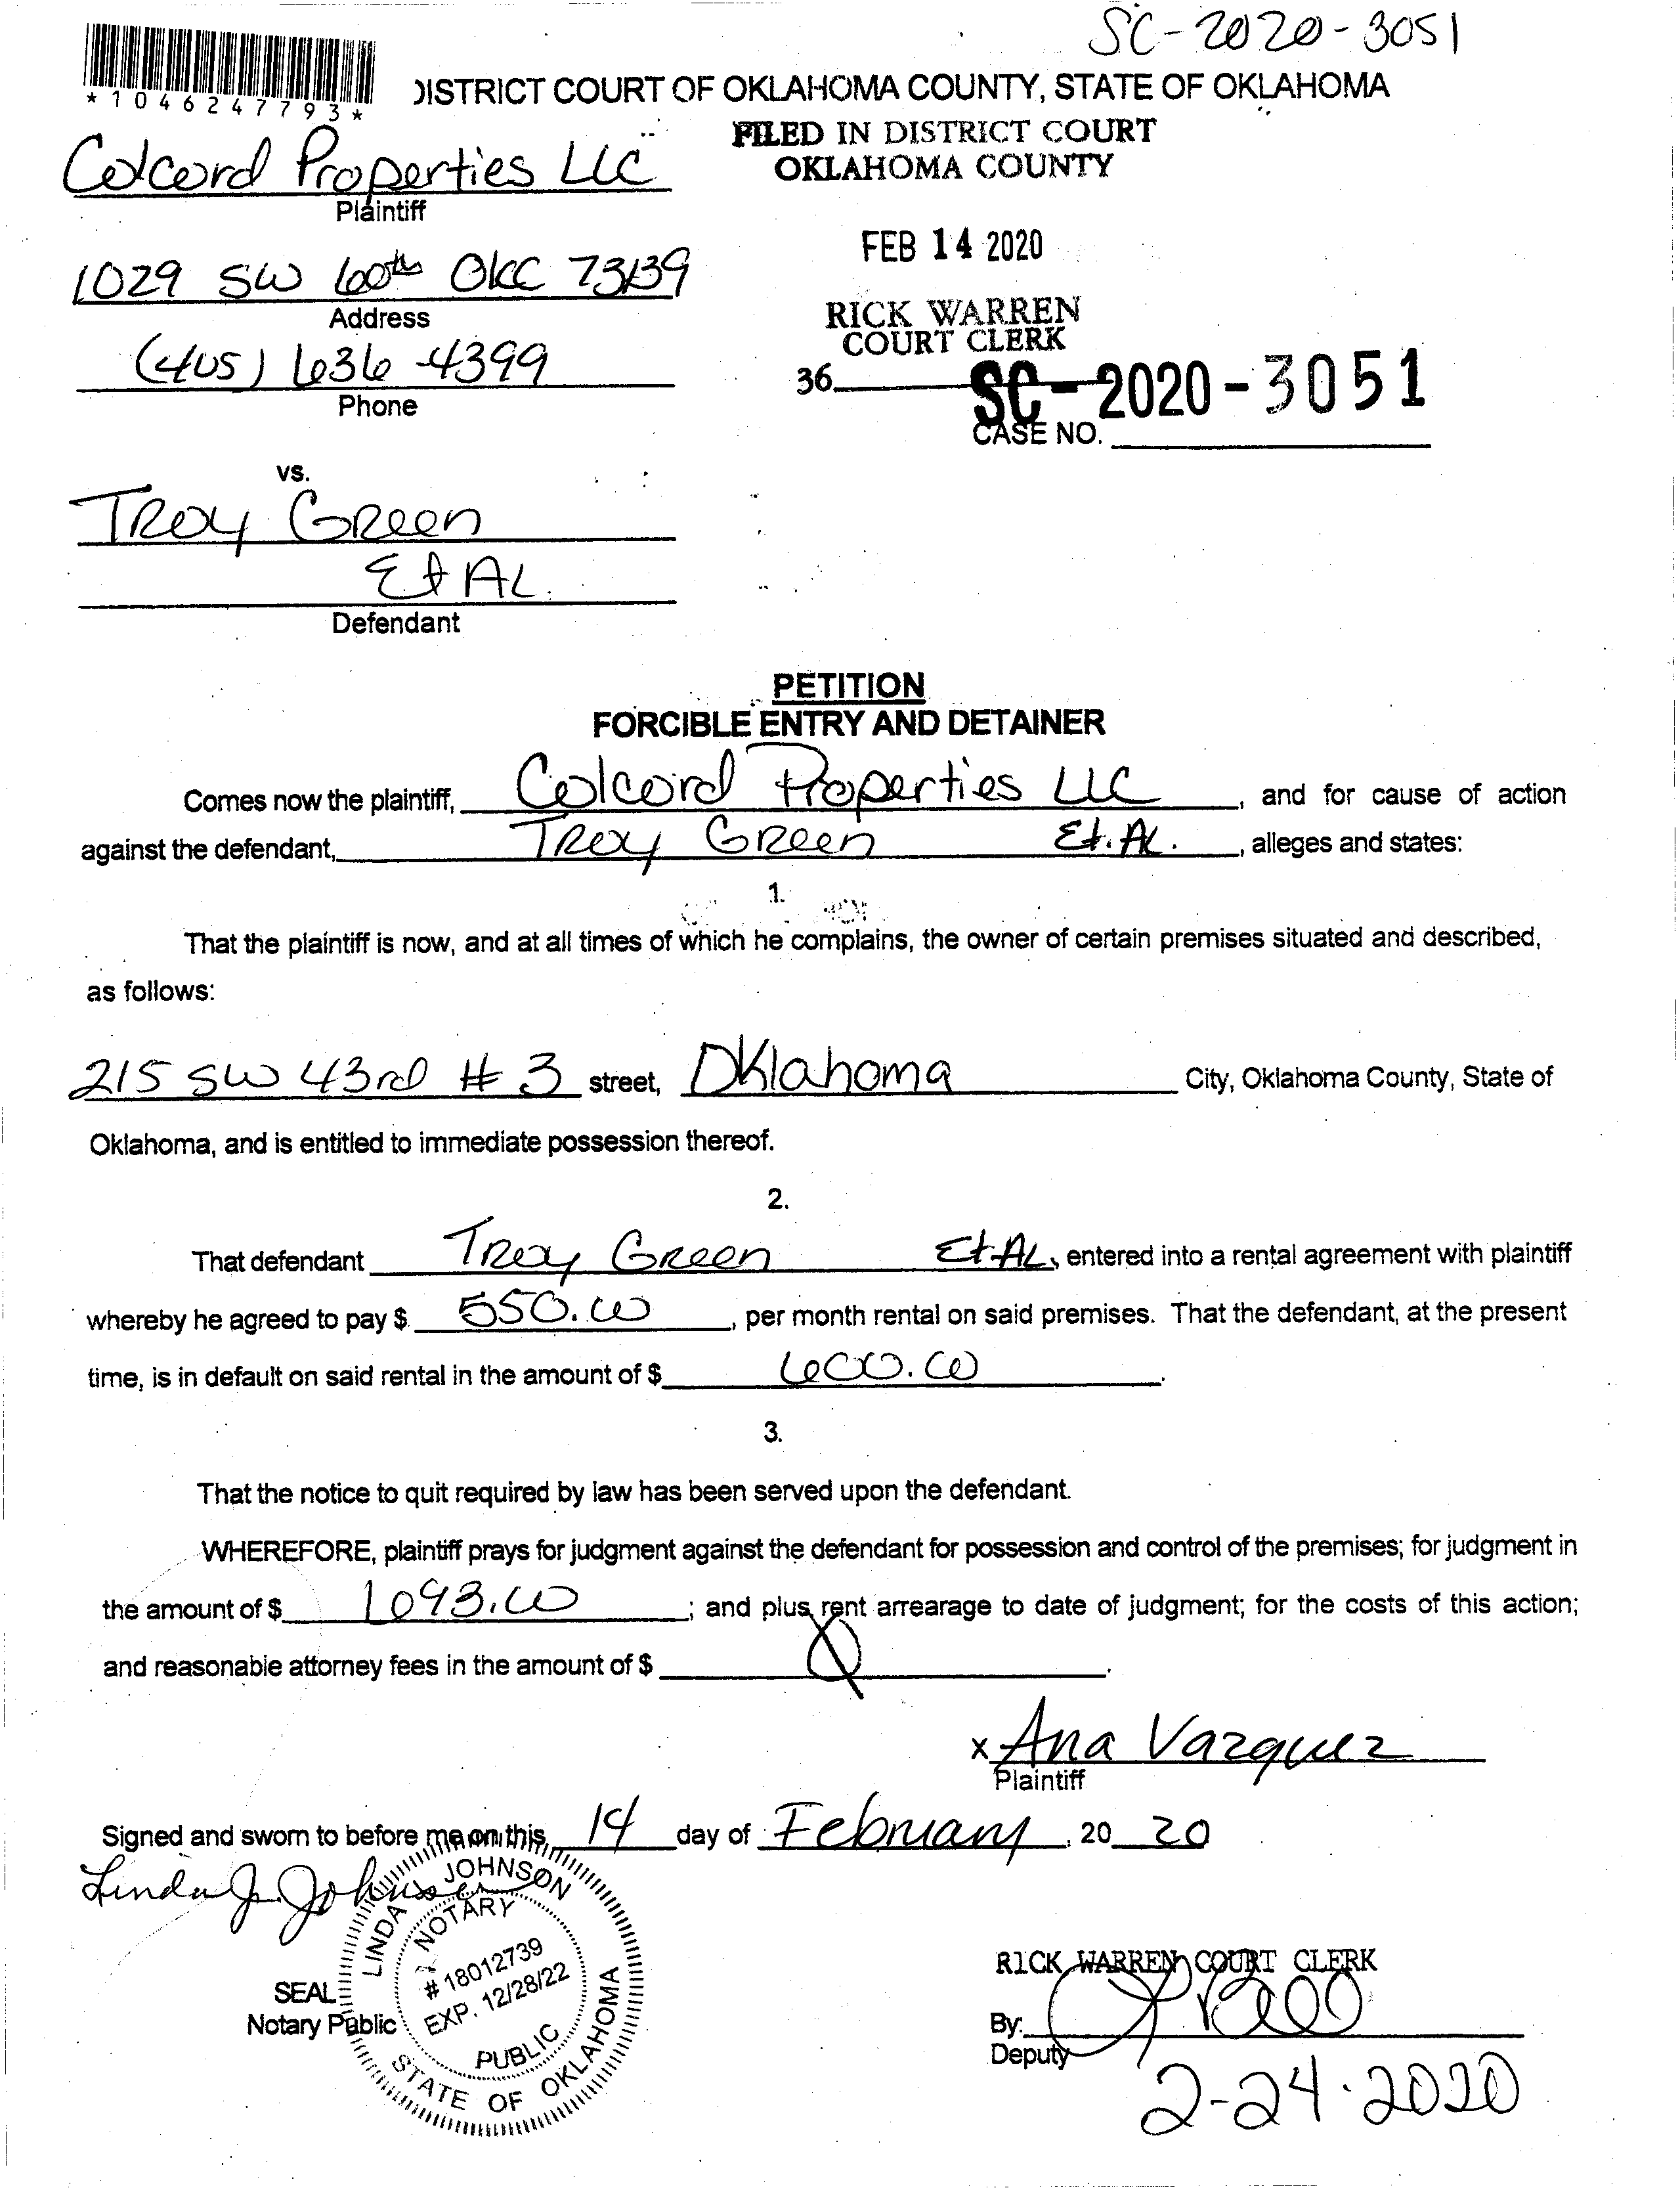 SC-2020-3051
*1046247793*
DISTRICT COURT OF OKLAHOMA COUNTY, STATE OF OKLAHOMA
FILED IN DISTRICT COURT
OKLAHOMA COUNTY
Colcord Properties LLC
Plaintiff
FEB 14 2020
1029 SW 60th OKC 73139
Address
RICK WARREN
COURT CLERK
(405) 636-4399
Phone
36
SC-2020-3051
CASE NO.
vs.
Troy Green
Et AL.
Defendant
PETITION
FORCIBLE ENTRY AND DETAINER
Comes now the plaintiff, Colcord Properties LLC, and for cause of action
against the defendant, Troy Green Et. AL., alleges and states:
1.
That the plaintiff is now, and at all times of which he complains, the owner of certain premises situated and described,
as follows:
215 SW 43rd # 3 street, Oklahoma City, Oklahoma County, State of
Oklahoma, and is entitled to immediate possession thereof.
2.
That defendant Troy Green Et AL, entered into a rental agreement with plaintiff
whereby he agreed to pay $ 550.00, per month rental on said premises. That the defendant, at the present
time, is in default on said rental in the amount of $ 600.00.
3.
That the notice to quit required by law has been served upon the defendant.
WHEREFORE, plaintiff prays for judgment against the defendant for possession and control of the premises; for judgment in
the amount of $ 1093.00; and plus rent arrearage to date of judgment; for the costs of this action;
and reasonable attorney fees in the amount of $
x Ana Vazquez
Plaintiff
Signed and sworn to before me on this 14 day of February, 20 20
Linda J. Johnson
LINDA J. JOHNSON
NOTARY
# 18012739
EXP. 12/28/22
PUBLIC
STATE OF OKLAHOMA
SEAL
Notary Public
RICK WARREN COURT CLERK
By:
Deputy
2-24-2020